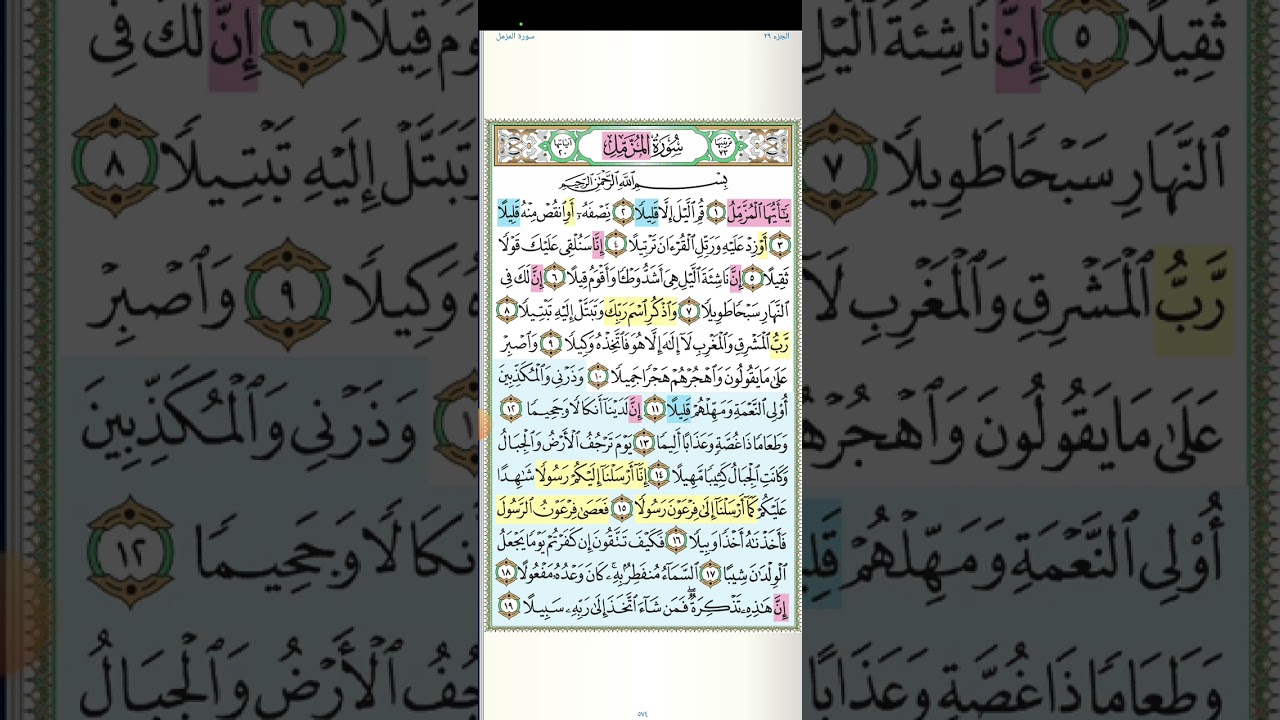 الجزء ٢٩
سورة المزمل
ترتيبها ٧٣
سُورَةُ المُزَّمِّل
آياتها ٢٠
بِسْمِ ٱللَّهِ ٱلرَّحْمَٰنِ ٱلرَّحِيمِ
يَٰٓأَيُّهَا ٱلْمُزَّمِّلُ ١ قُمِ ٱلَّيْلَ إِلَّا قَلِيلًا ٢ نِّصْفَهُۥٓ أَوِ ٱنقُصْ مِنْهُ قَلِيلًا
٣ أَوْ زِدْ عَلَيْهِ وَرَتِّلِ ٱلْقُرْءَانَ تَرْتِيلًا ٤ إِنَّا سَنُلْقِى عَلَيْكَ قَوْلًا
ثَقِيلًا ٥ إِنَّ نَاشِئَةَ ٱلَّيْلِ هِىَ أَشَدُّ وَطْـًٔا وَأَقْوَمُ قِيلًا ٦ إِنَّ لَكَ فِى
ٱلنَّهَارِ سَبْحًا طَوِيلًا ٧ وَٱذْكُرِ ٱسْمَ رَبِّكَ وَتَبَتَّلْ إِلَيْهِ تَبْتِيلًا ٨
رَّبُّ ٱلْمَشْرِقِ وَٱلْمَغْرِبِ لَآ إِلَٰهَ إِلَّا هُوَ فَٱتَّخِذْهُ وَكِيلًا ٩ وَٱصْبِرْ
عَلَىٰ مَا يَقُولُونَ وَٱهْجُرْهُمْ هَجْرًا جَمِيلًا ١٠ وَذَرْنِى وَٱلْمُكَذِّبِينَ
أُو۟لِى ٱلنَّعْمَةِ وَمَهِّلْهُمْ قَلِيلًا ١١ إِنَّ لَدَيْنَآ أَنكَالًا وَجَحِيمًا ١٢
وَطَعَامًا ذَا غُصَّةٍ وَعَذَابًا أَلِيمًا ١٣ يَوْمَ تَرْجُفُ ٱلْأَرْضُ وَٱلْجِبَالُ
وَكَانَتِ ٱلْجِبَالُ كَثِيبًا مَّهِيلًا ١٤ إِنَّآ أَرْسَلْنَآ إِلَيْكُمْ رَسُولًا شَٰهِدًا
عَلَيْكُمْ كَمَآ أَرْسَلْنَآ إِلَىٰ فِرْعَوْنَ رَسُولًا ١٥ فَعَصَىٰ فِرْعَوْنُ ٱلرَّسُولَ
فَأَخَذْنَٰهُ أَخْذًا وَبِيلًا ١٦ فَكَيْفَ تَتَّقُونَ إِن كَفَرْتُمْ يَوْمًا يَجْعَلُ
ٱلْوِلْدَٰنَ شِيبًا ١٧ ٱلسَّمَآءُ مُنفَطِرٌۢ بِهِۦ ۚ كَانَ وَعْدُهُۥ مَفْعُولًا ١٨
إِنَّ هَٰذِهِۦ تَذْكِرَةٌ ۖ فَمَن شَآءَ ٱتَّخَذَ إِلَىٰ رَبِّهِۦ سَبِيلًا ١٩
٥٧٤